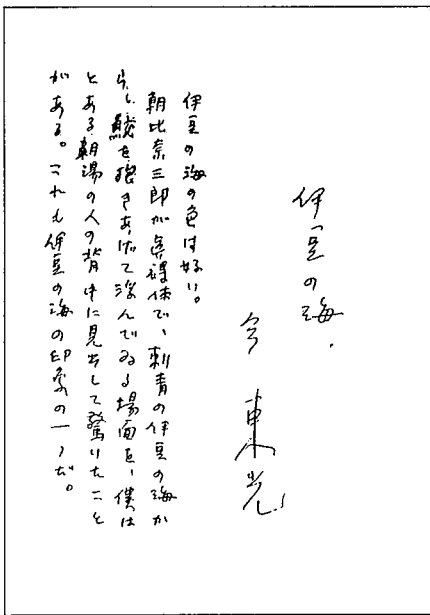 伊豆の海
今東光
伊豆の海の色は好い。
朝比奈三郎が真裸体で、刺青の伊豆の海か
ら、鮫を抱きあげて浮んでゐる場面を、僕は
とある朝湯の人の背中に見出して驚いたこと
がある。これも伊豆の海の印象の一つだ。